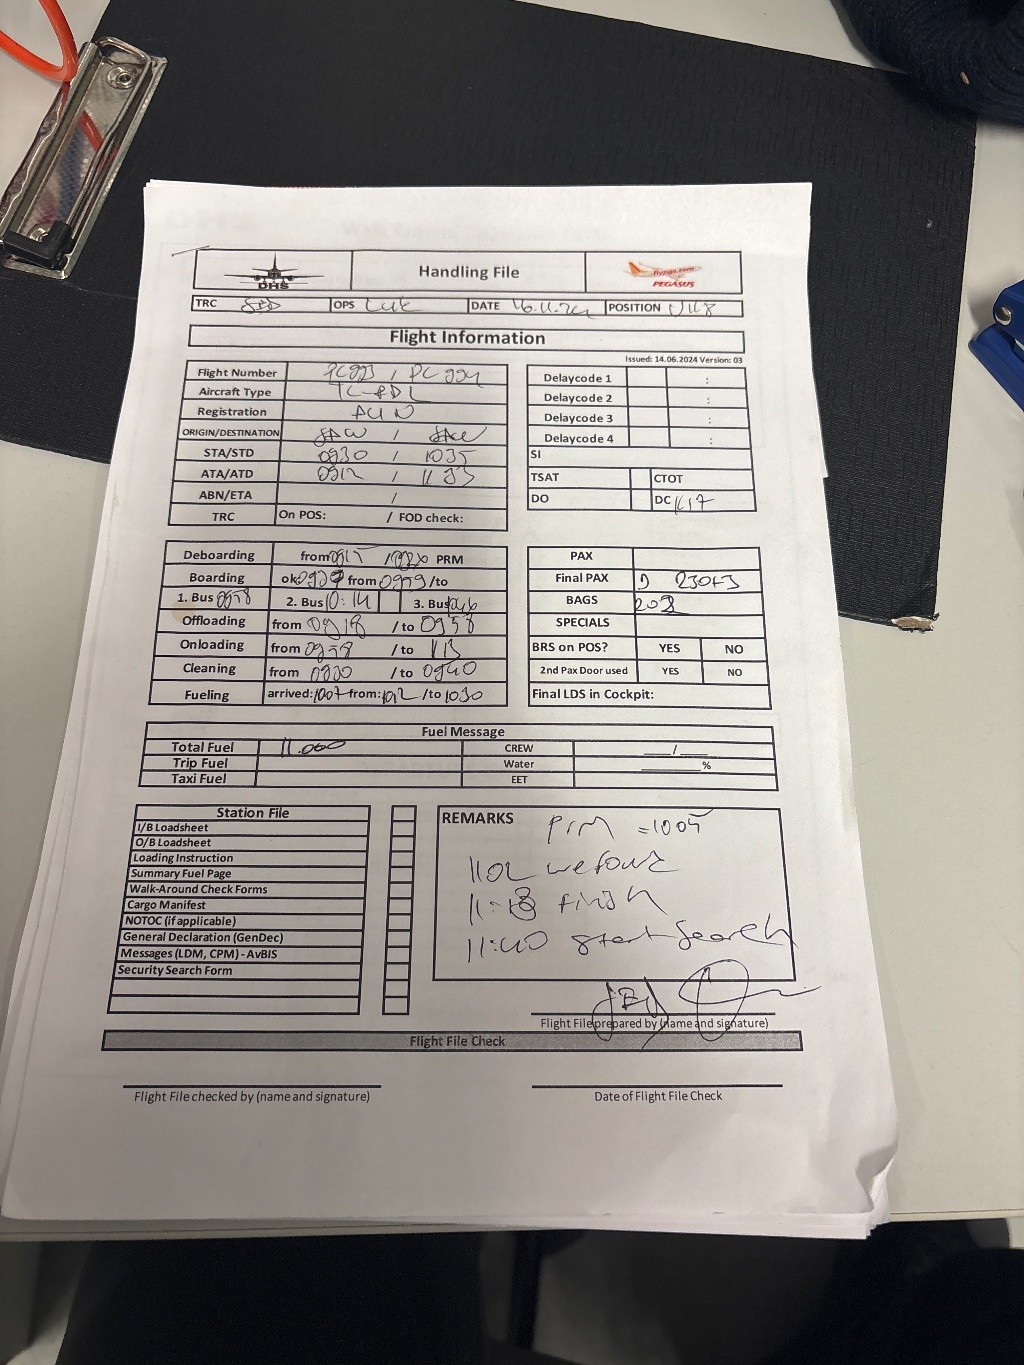 DHS Handling File flypgs.com PEGASUS
TRC OPS Luk DATE 16.11.24 POSITION V118
Flight Information
Issued: 14.06.2024 Version: 03
Flight Number / PC 994
Aircraft Type
Registration
ORIGIN/DESTINATION SAW /
STA/STD 0930 / 1035
ATA/ATD 0912 / 1133
ABN/ETA /
TRC On POS: / FOD check:
Delaycode 1 :
Delaycode 2 :
Delaycode 3 :
Delaycode 4 :
SI
TSAT CTOT
DO DC 1117
Deboarding from 0915 / PRM
Boarding ok from 0959 /to
1. Bus 0958 2. Bus 10:14 3. Bus 1046
Offloading from 0918 /to 0958
Onloading from 0958 /to
Cleaning from 0930 /to 0940
Fueling arrived: 1007 from: 1012 /to 1030
PAX
Final PAX 230+3
BAGS 208
SPECIALS
BRS on POS? YES NO
2nd Pax Door used YES NO
Final LDS in Cockpit:
Fuel Message
Total Fuel 11.000 CREW ___/___
Trip Fuel Water ______%
Taxi Fuel EET
Station File
I/B Loadsheet
O/B Loadsheet
Loading Instruction
Summary Fuel Page
Walk-Around Check Forms
Cargo Manifest
NOTOC (if applicable)
General Declaration (GenDec)
Messages (LDM, CPM) - AvBIS
Security Search Form
REMARKS PRM =1005
1102 we found
11:18 finish
11:40 start Search
Flight File prepared by (name and signature)
Flight File Check
Flight File checked by (name and signature)
Date of Flight File Check